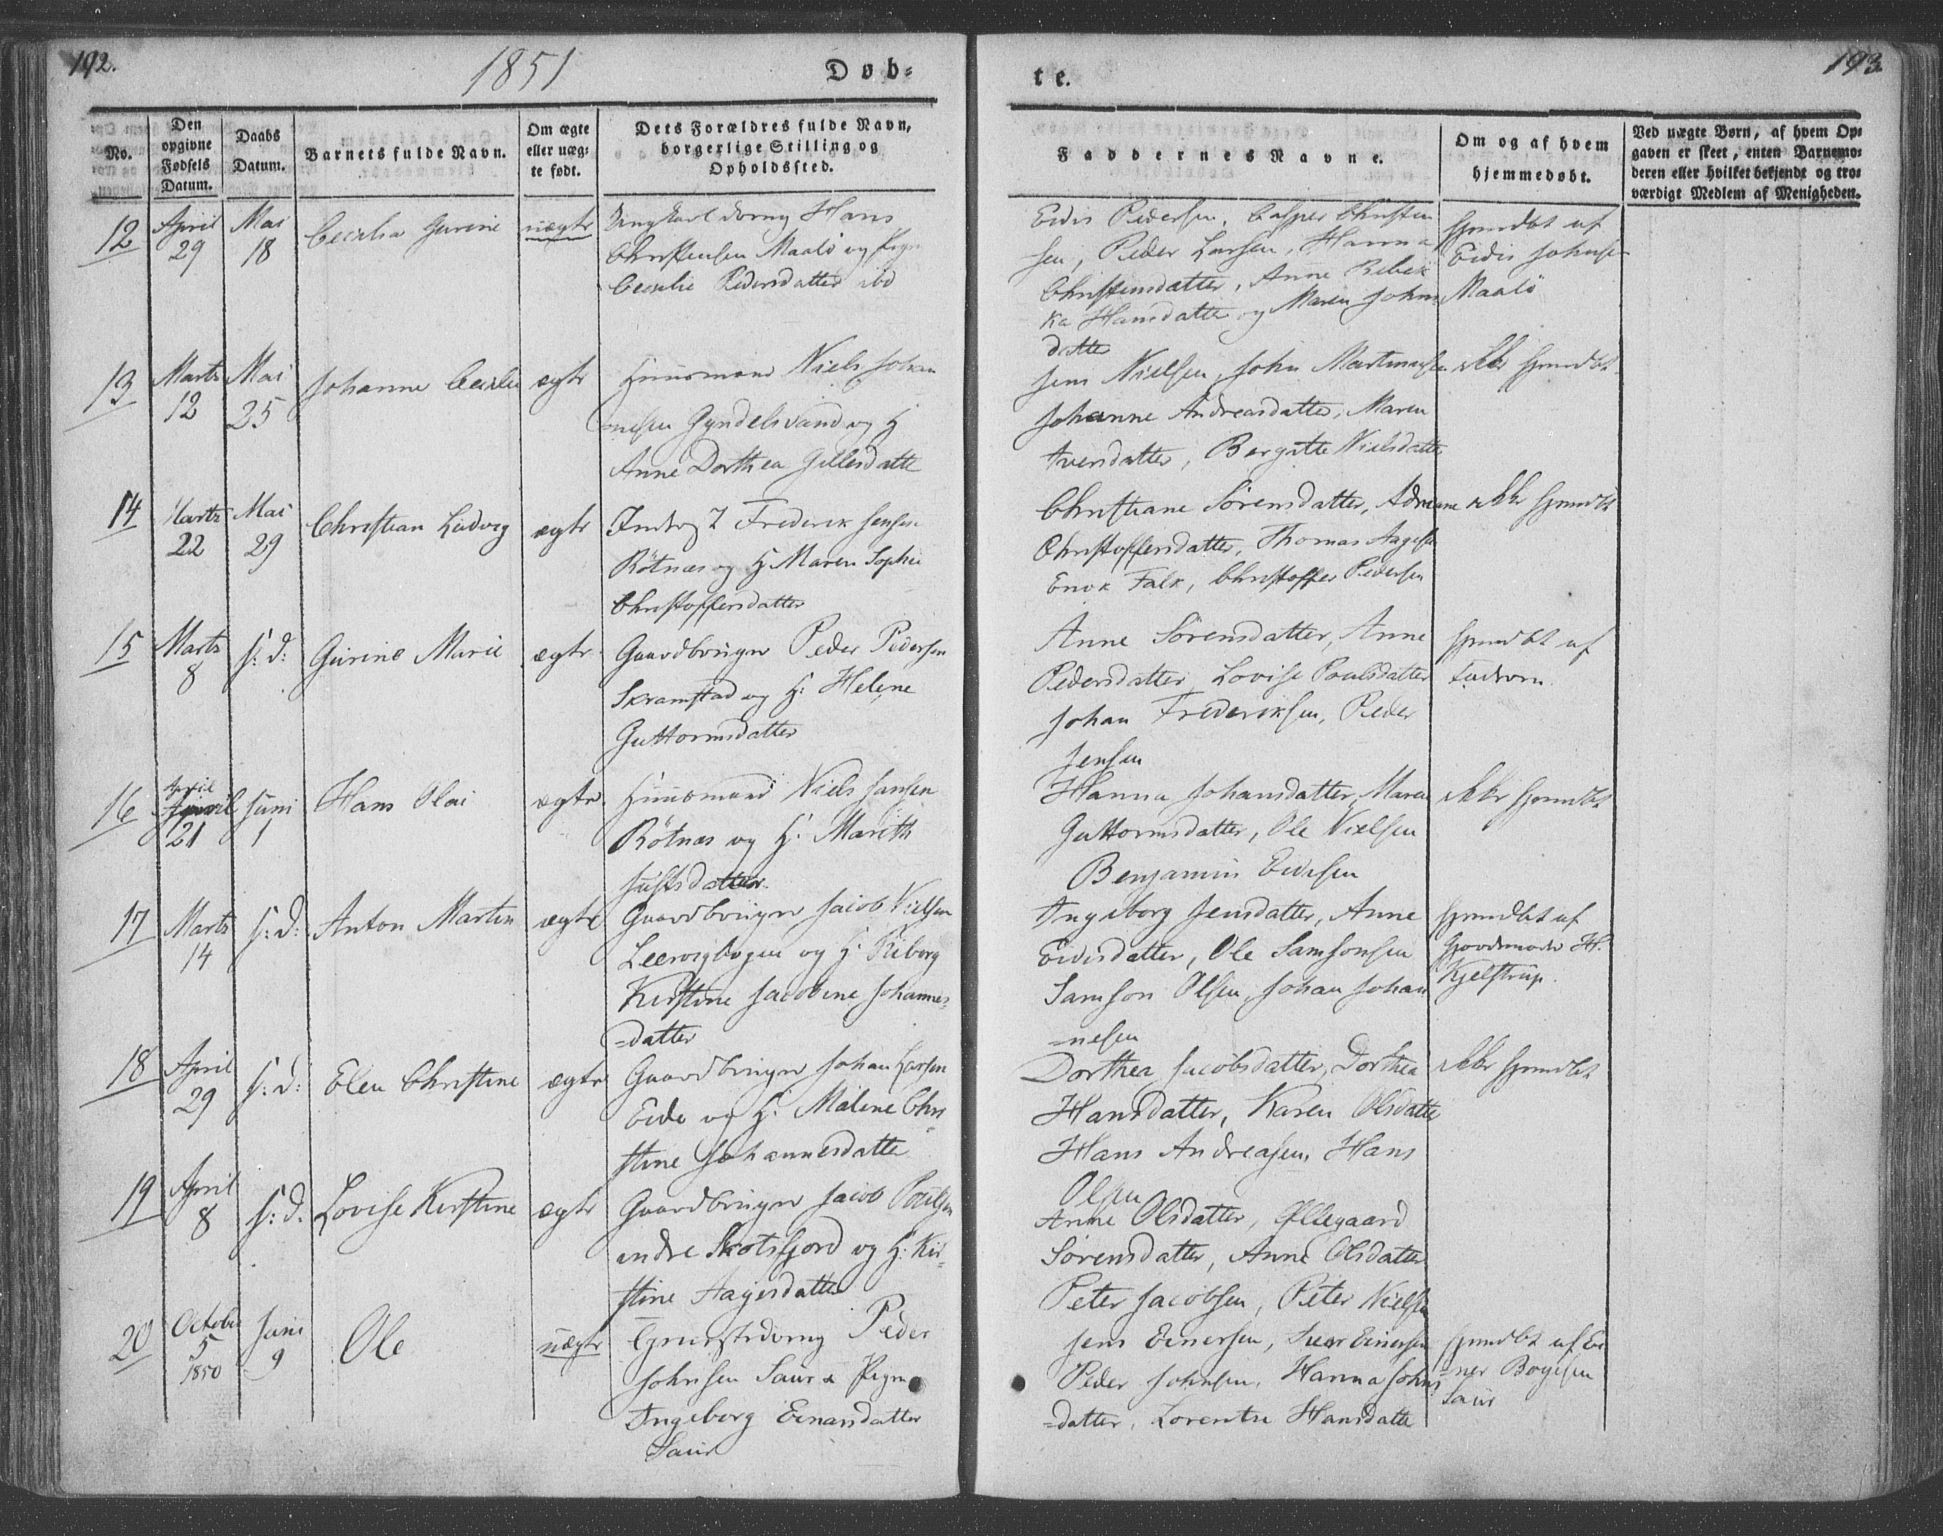 192.
1851
Døb-
te.
193
No.
Den opgivne Fødsels Datum.
Daabs Datum.
Barnets fulde Navn.
Om ægte eller uæg-te født.
Dets Forældres fulde Navn, borgerlige Stilling og Opholdssted.
Faddernes Navne.
Om og af hvem hjemmedøbt.
Ved uægte Børn, af hvem Op-
gaven er skeet, enten Barnemo-
deren eller hvilket bekjendt og tro-
værdigt Medlem af Menigheden.
12 April 29 Mai 18 Cecilia Gurine uægte
Ungkarl Hans
Christensen Maalø og Pigen
Cecilie Pedersdatter ibd
Eidis Pedersen, Casper Christen
sen, Peder Larsen, Hanna
Christensdatter, Anne Rebek
ka Hansdatter og Maren Johns
datter
hjemdbt af
Eidis Johnse
Maalø
13 Marts 12 Mai 25 Johanne Cecilie ægte
Huusmand Niels Johan
nesen Gyndelsvand og H
Anne Dorthea Gillesdatter
Jens Nielsen, John Martinussen
Johanne Andreasdatter, Maren
Iversdatter, Bergitte Nielsdatter
ikke hjemdbt
14 Marts 22 Mai 29 Christian Ludvig ægte
Frederik Jensen
Røtnæs og H Maren Sophie
Christoffersdatter
Christiane Sørensdatter, Adriane
Christoffersdatter, Thomas Aagesen
Enok Falk, Christoffer Pedersen
ikke hjemdbt
15 Marts 8 s: d: Gurine Marie ægte
Gaardbruger Peder Pedersen
Skramstad og H: Helene
Guttormsdatter
Anne Sørensdatter, Anne
Pedersdatter, Lovise Paulsdatter
Johan Frederiksen, Peder
Jensen
hjemdbt af
16 April 21 Juni 1 Hans Olai ægte
Huusmand Niels Jansen
Røtnæs og H: Marith
Justsdatter
Hanna Johansdatter, Maren
Guttormsdatter, Ole Nielsen
Benjamin Eidisen
ikke hjemdbt
17 Marts 14 s: d: Anton Martin ægte
Gaardbruger Jacob Nielsen
og H: Riborg
Kirstine Jacobine Johannes-
-datter
Ingeborg Jensdatter, Anne
Eidisdatter, Ole Samsonsen
Samson Olsen, Johan Johan
-nesen
hjemdbt af
H.
Kjelstrup.
18 April 29 s: d: Elen Christine ægte
Gaardbruger Johan Larsen
Eide og H: Malene Chri
stine Johannesdatter
Dorthea Jacobsdatter, Dorthea
Hansdatter, Karen Olsdatter
Hans Andreasen, Hans
Olsen
ikke hjemdbt
19 April 8 s: d. Lovise Kirstine ægte
Gaardbruger Jacob Paulsen
indre Skotsfjord og H: Kir-
stine Aagesdatter
Anne Olsdatter, Ollegaard
Sørensdatter, Anne Olsdatter
Peter Jacobsen, Peter Nielsen
20 October 5 1850 Juni 9 Ole uægte
Peder
Johnsen Saur & Pigen
Ingeborg Einarsdatter
Saur
Jens Einersen, Einersen
Peder Johnsen, Hanna Johns
-datter, Lorentse Hansdatter
hjemdbt af Ei
-ner Bogesen
Saur